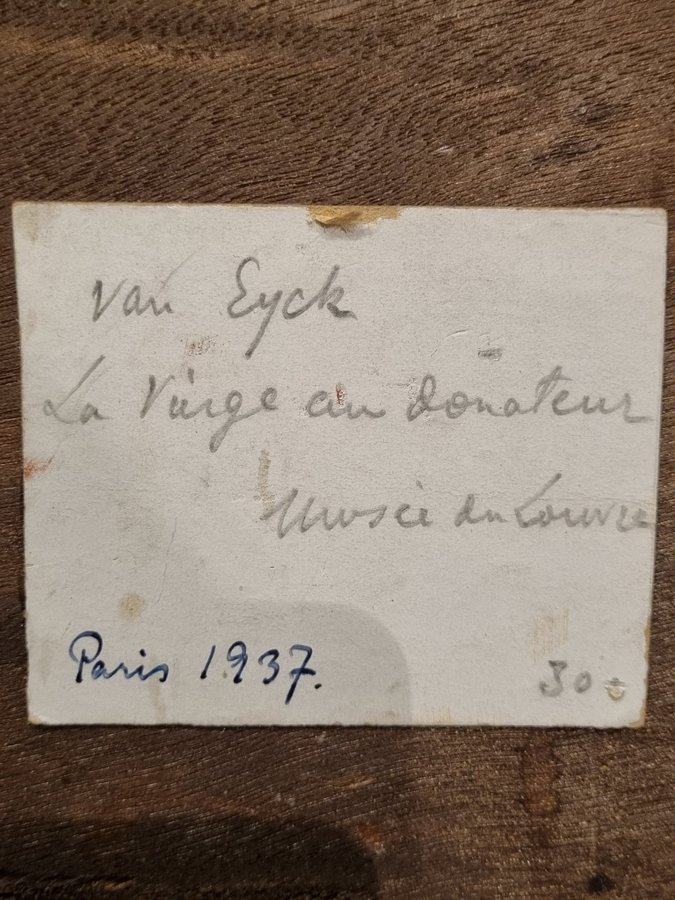 van Eyck
La Vierge au donateur
Musée du Louvre
Paris 1937.
30